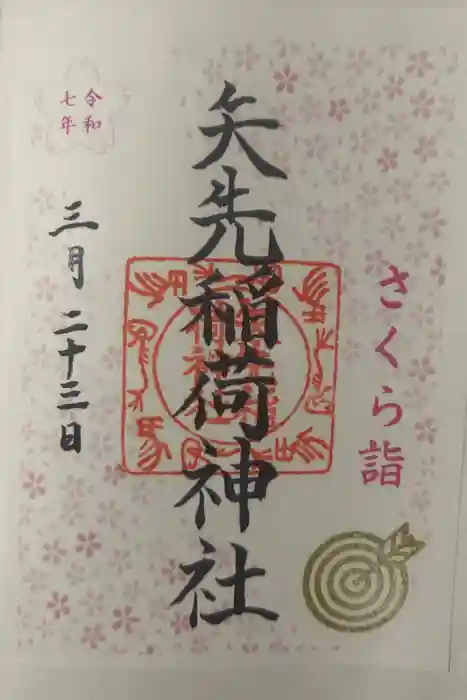 さくら詣
矢先稲荷神社
令和
七年
三月二十三日